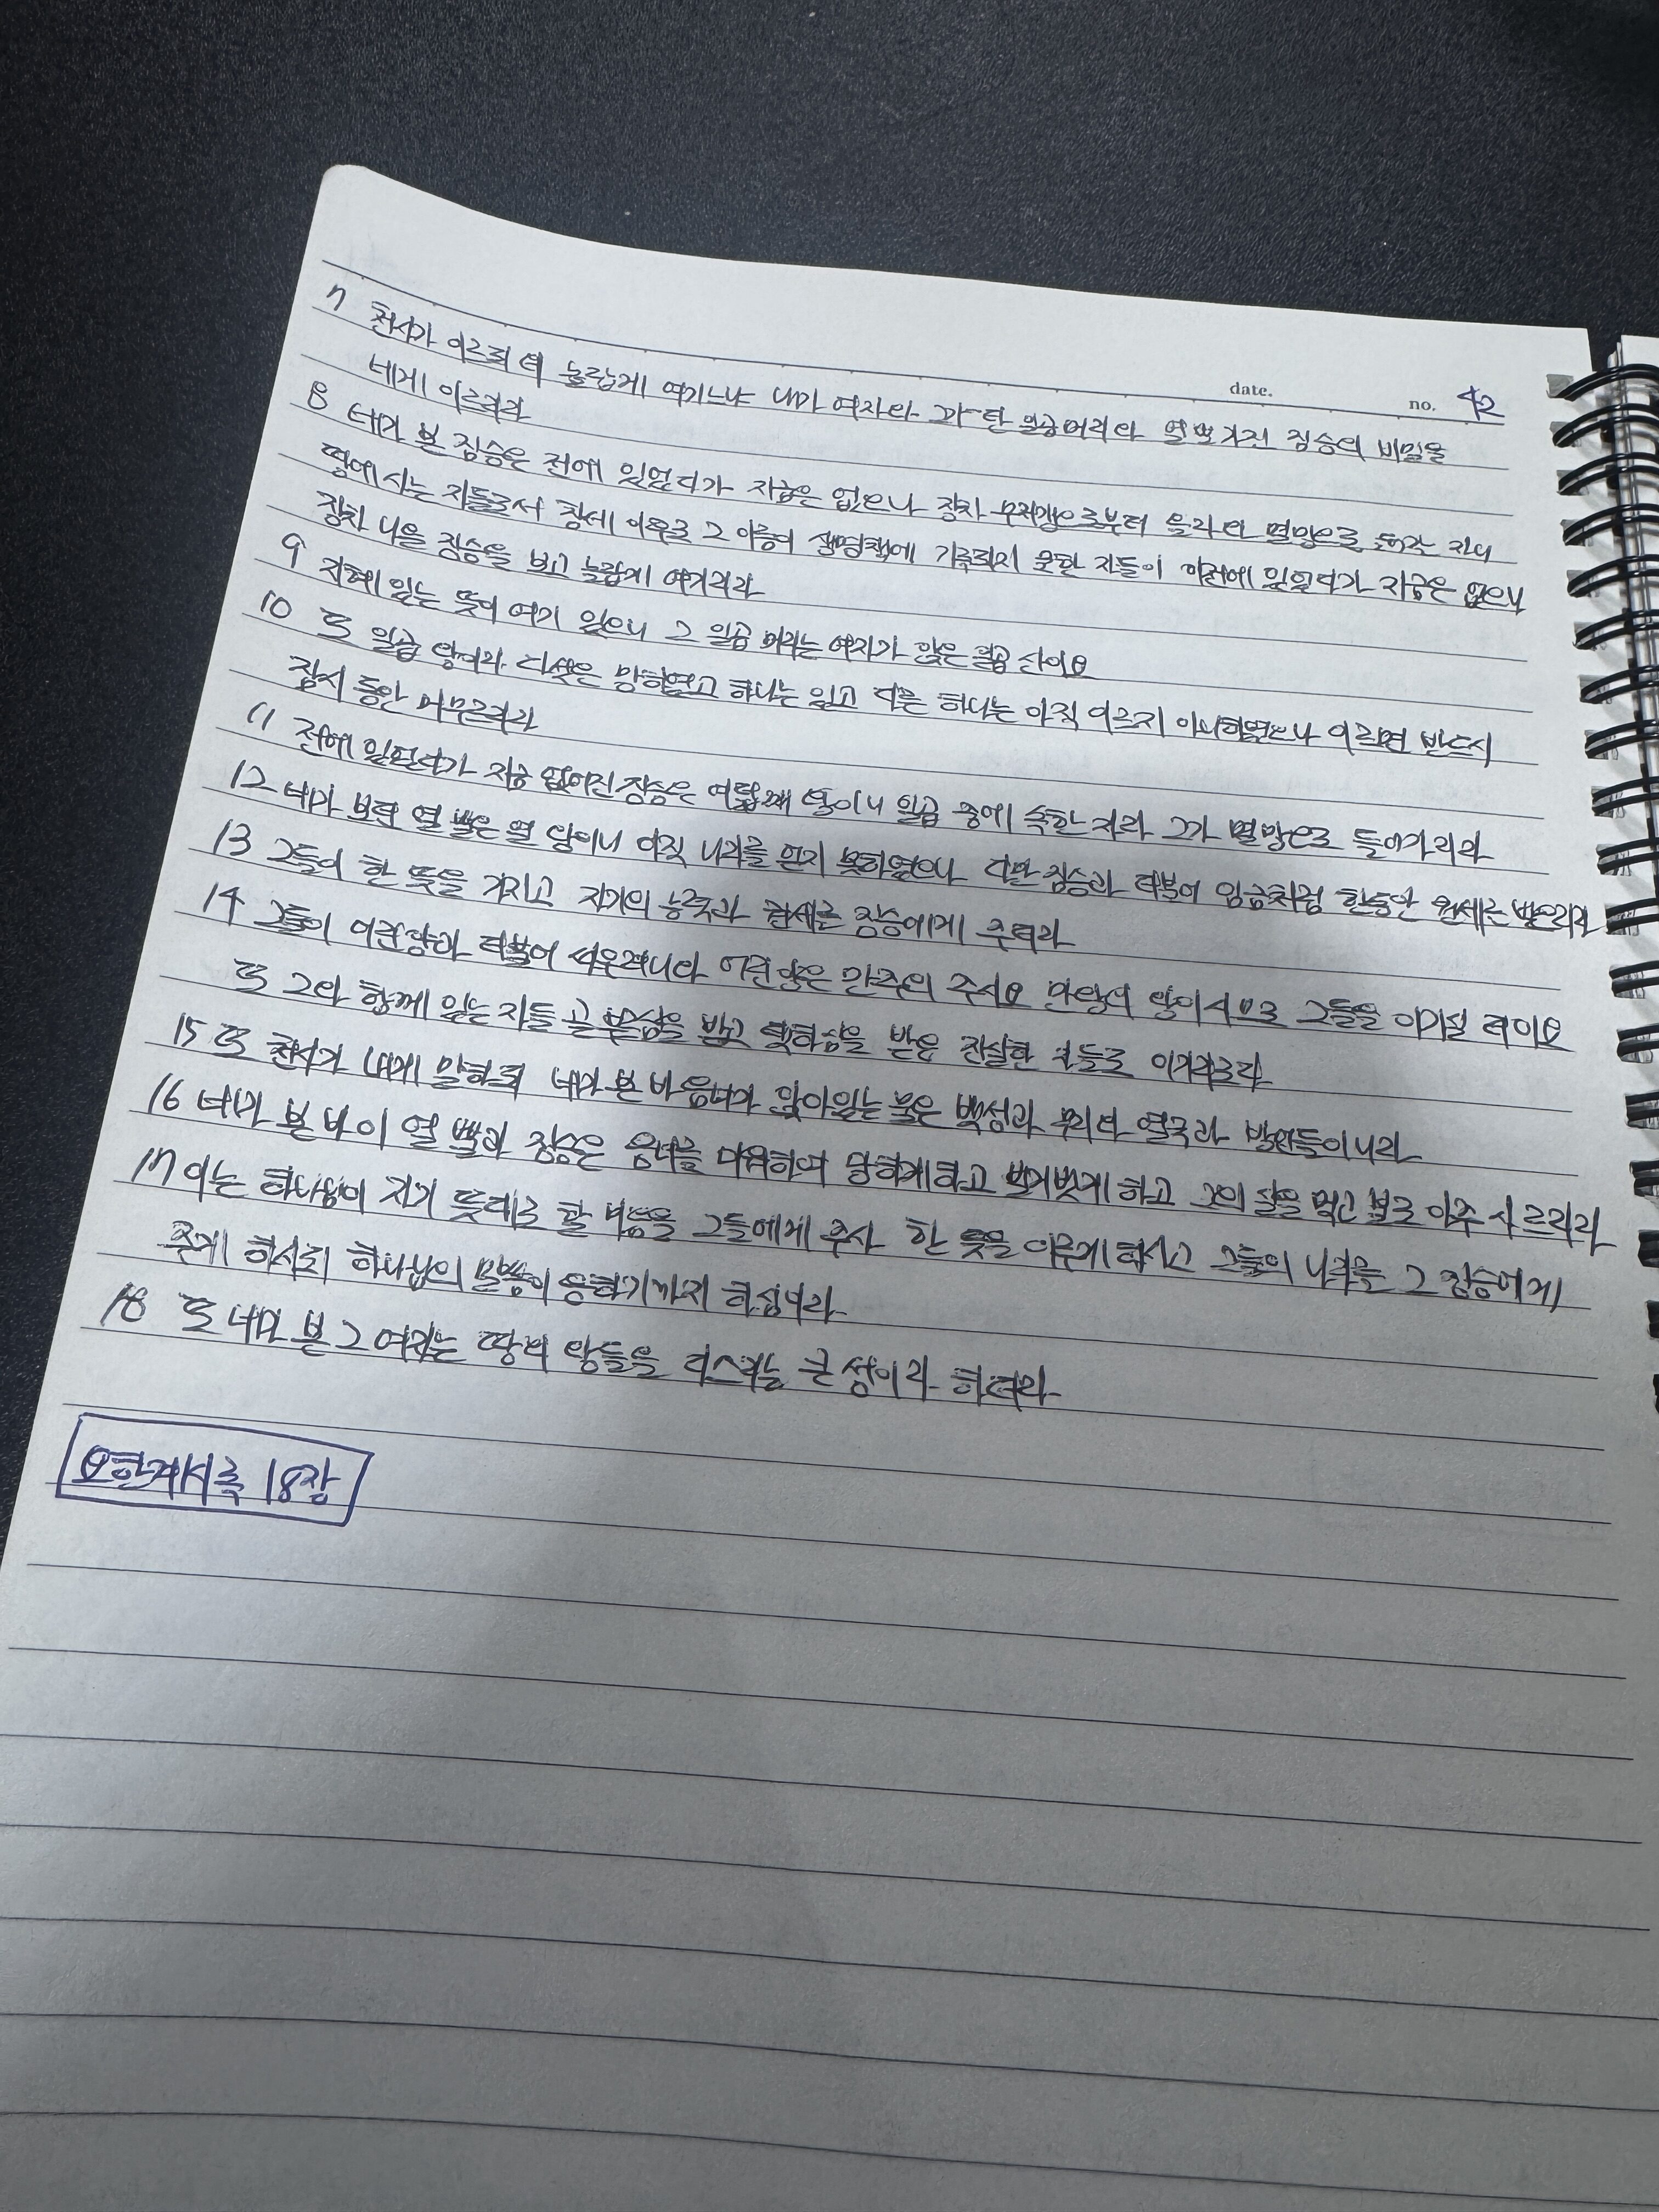 date.
no. 42
7 천사가 이르되 왜 놀랍게 여기느냐 내가 여자와 그가 탄 일곱머리와 열 뿔 가진 짐승의 비밀을
네게 이르리라
8 네가 본 짐승은 전에 있었다가 지금은 없으나 장차 무저갱으로부터 올라와 멸망으로 들어갈 자니
땅에 사는 자들로서 창세 이후로 그 이름이 생명책에 기록되지 못한 자들이 이전에 있었다가 지금은 없으나
장차 나올 짐승을 보고 놀랍게 여기리라
9 지혜 있는 뜻이 여기 있으니 그 일곱 머리는 여자가 앉은 일곱 산이요
10 또 일곱 왕이라 다섯은 망하였고 하나는 있고 다른 하나는 아직 이르지 아니하였으나 이르면 반드시
잠시 동안 머무르리라
11 전에 있었다가 지금 없어진 짐승은 여덟째 왕이니 일곱 중에 속한 자라 그가 멸망으로 들어가리라
12 네가 보던 열 뿔은 열 왕이니 아직 나라를 얻지 못하였으나 다만 짐승과 더불어 임금처럼 한동안 권세를 받으리라
13 그들이 한 뜻을 가지고 자기의 능력과 권세를 짐승에게 주더라
14 그들이 어린양과 더불어 싸우려니와 어린양은 만주의 주시요 만왕의 왕이시므로 그들을 이기실 터이요
또 그와 함께 있는 자들 곧 부르심을 받고 택하심을 받은 진실한 자들도 이기리로다
15 또 천사가 내게 말하되 네가 본 바 음녀가 앉아있는 물은 백성과 무리와 열국과 방언들이니라
16 네가 본 바 이 열 뿔과 짐승은 음녀를 미워하여 망하게하고 벌거벗게 하고 그의 살을 먹고 불로 아주 사르리라
17 이는 하나님이 자기 뜻대로 할 마음을 그들에게 주사 한 뜻을 이루게 하시고 그들의 나라를 그 짐승에게
주게 하시되 하나님의 말씀이 응하기까지 하심이라
18 또 네가 본 그 여자는 땅의 왕들을 다스리는 큰 성이라 하더라
요한계시록 18장